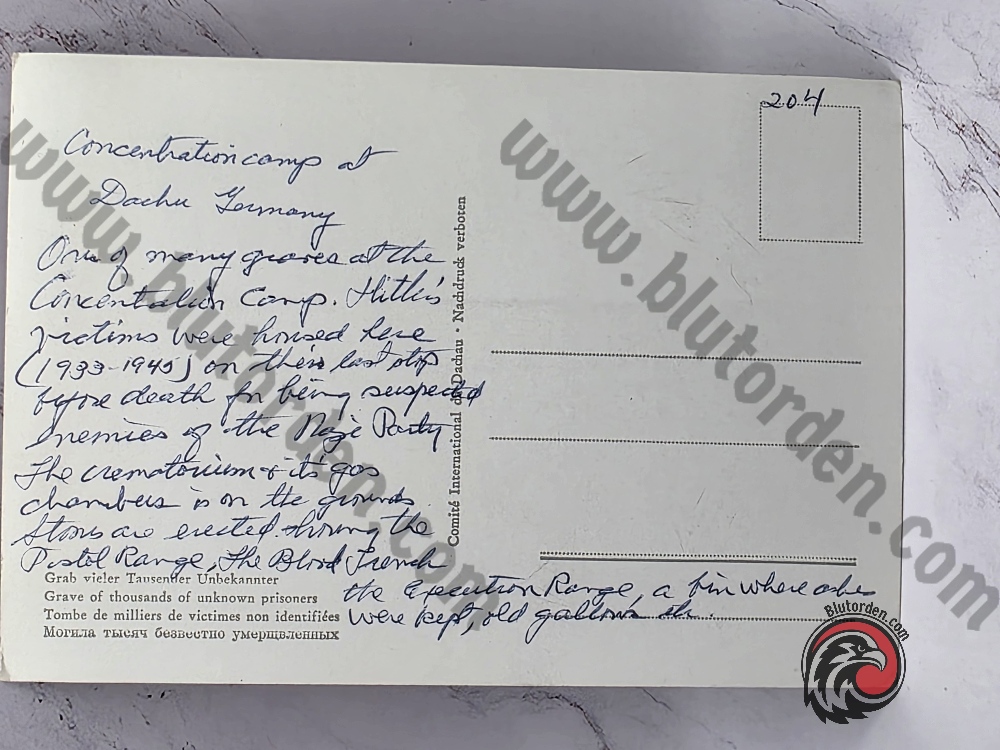 204
Concentration camp at
Dachu Germany
One of many graves at the
Concentration Camp. Hitler's
victims were housed here
(1933-1945) on their last stop
before death for being suspected
enemies of the Nazi Party
The crematorium & it's gas
chambers is on the grounds.
Stones are erected showing the
Pistol Range, The Blood Trench
the Execution Range, a bin where ashes
were kept, old gallows etc.
Grab vieler Tausender Unbekannter
Grave of thousands of unknown prisoners
Tombe de milliers de victimes non identifiées
Могила тысяч безвестно умерщвленных
Comité International de Dachau · Nachdruck verboten
www.blutorden.com
www.blutorden.com
Blutorden.com